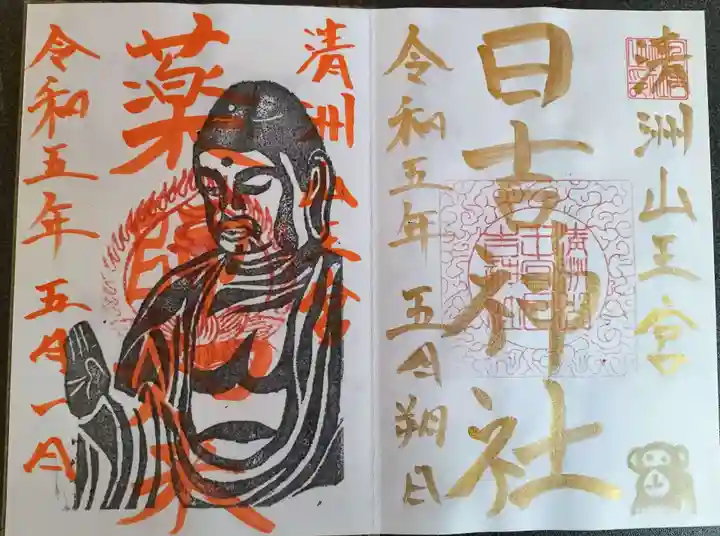 清洲山王宮
日吉神社
令和五年 五月朔日
山
清洲山王宮
薬師如来
令和五年 五月一日